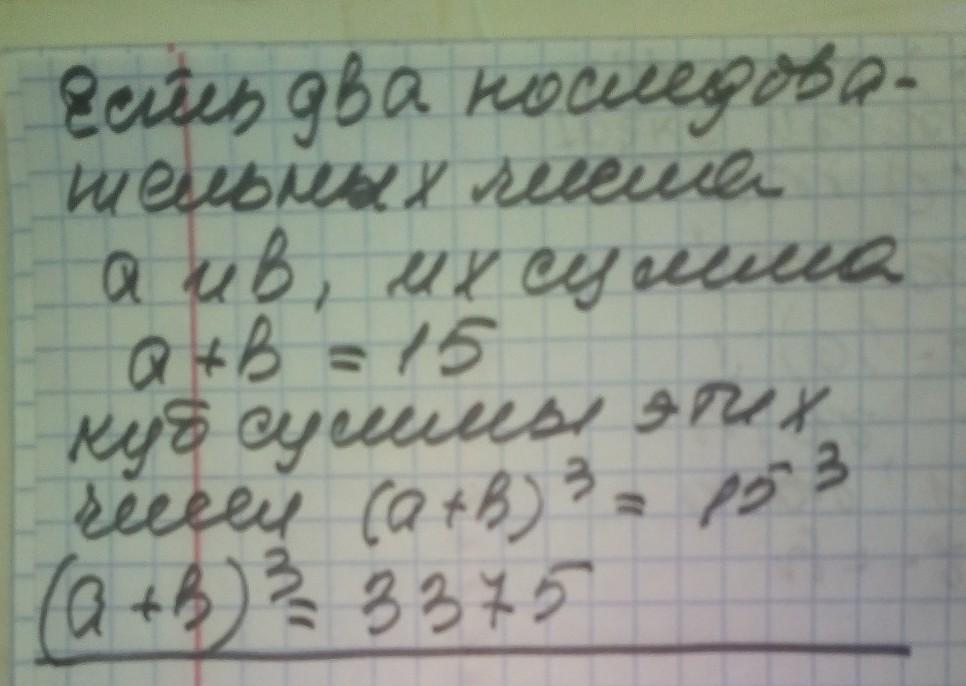 Есть два последова-
тельных числа
а и в, их сумма
а + в = 15
куб суммы этих
чисел (а + в)³ = 15³
(а + в)³ = 3375